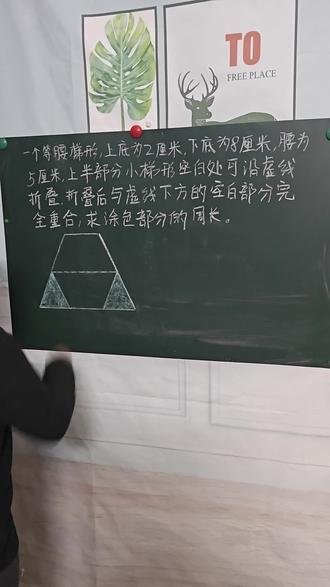 TO
FREE PLACE
一个等腰梯形,上底为2厘米,下底为8厘米,腰为
5厘米,上半部分小梯形空白处可沿虚线
折叠,折叠后与虚线下方的空白部分完
全重合,求涂色部分的周长。